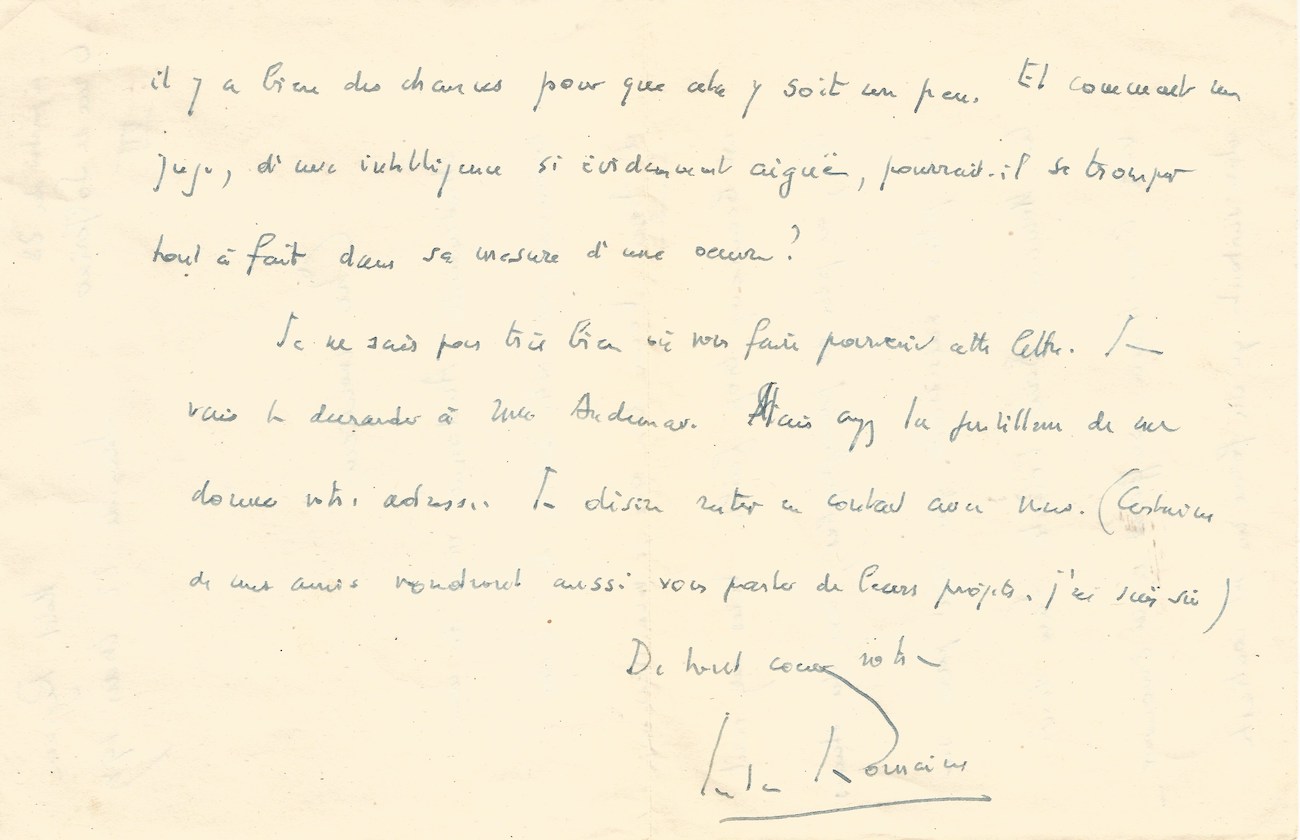 il y a bien des chances pour que cela y soit un peu. Et comment un
juge, d'une intelligence si évidemment aiguë, pourrait-il se tromper
tout à fait dans sa mesure d'une oeuvre?
Je ne sais pas très bien où vous faire parvenir cette lettre. Je
vais le demander à Mme Audemar. Mais ayez la gentillesse de me
donner votre adresse. Je désire rester en contact avec vous. (Certains
de mes amis voudront aussi vous parler de leurs projets, j'en suis sûr)
De tout coeur votre
Jules Romains